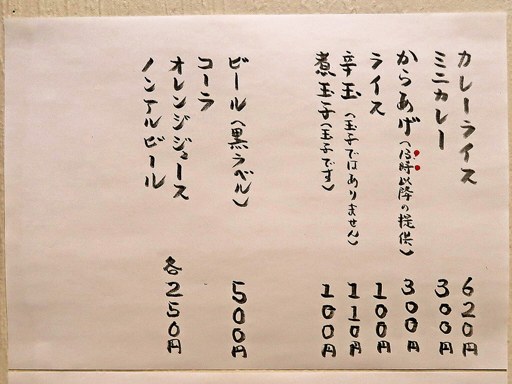 カレーライス 620円
ミニカレー 300円
からあげ(15時以降の提供) 300円
ライス 100円
辛玉(玉子ではありません) 110円
煮玉子(玉子です) 100円
ビール(黒ラベル) 500円
コーラ
オレンジジュース 各250円
ノンアルビール